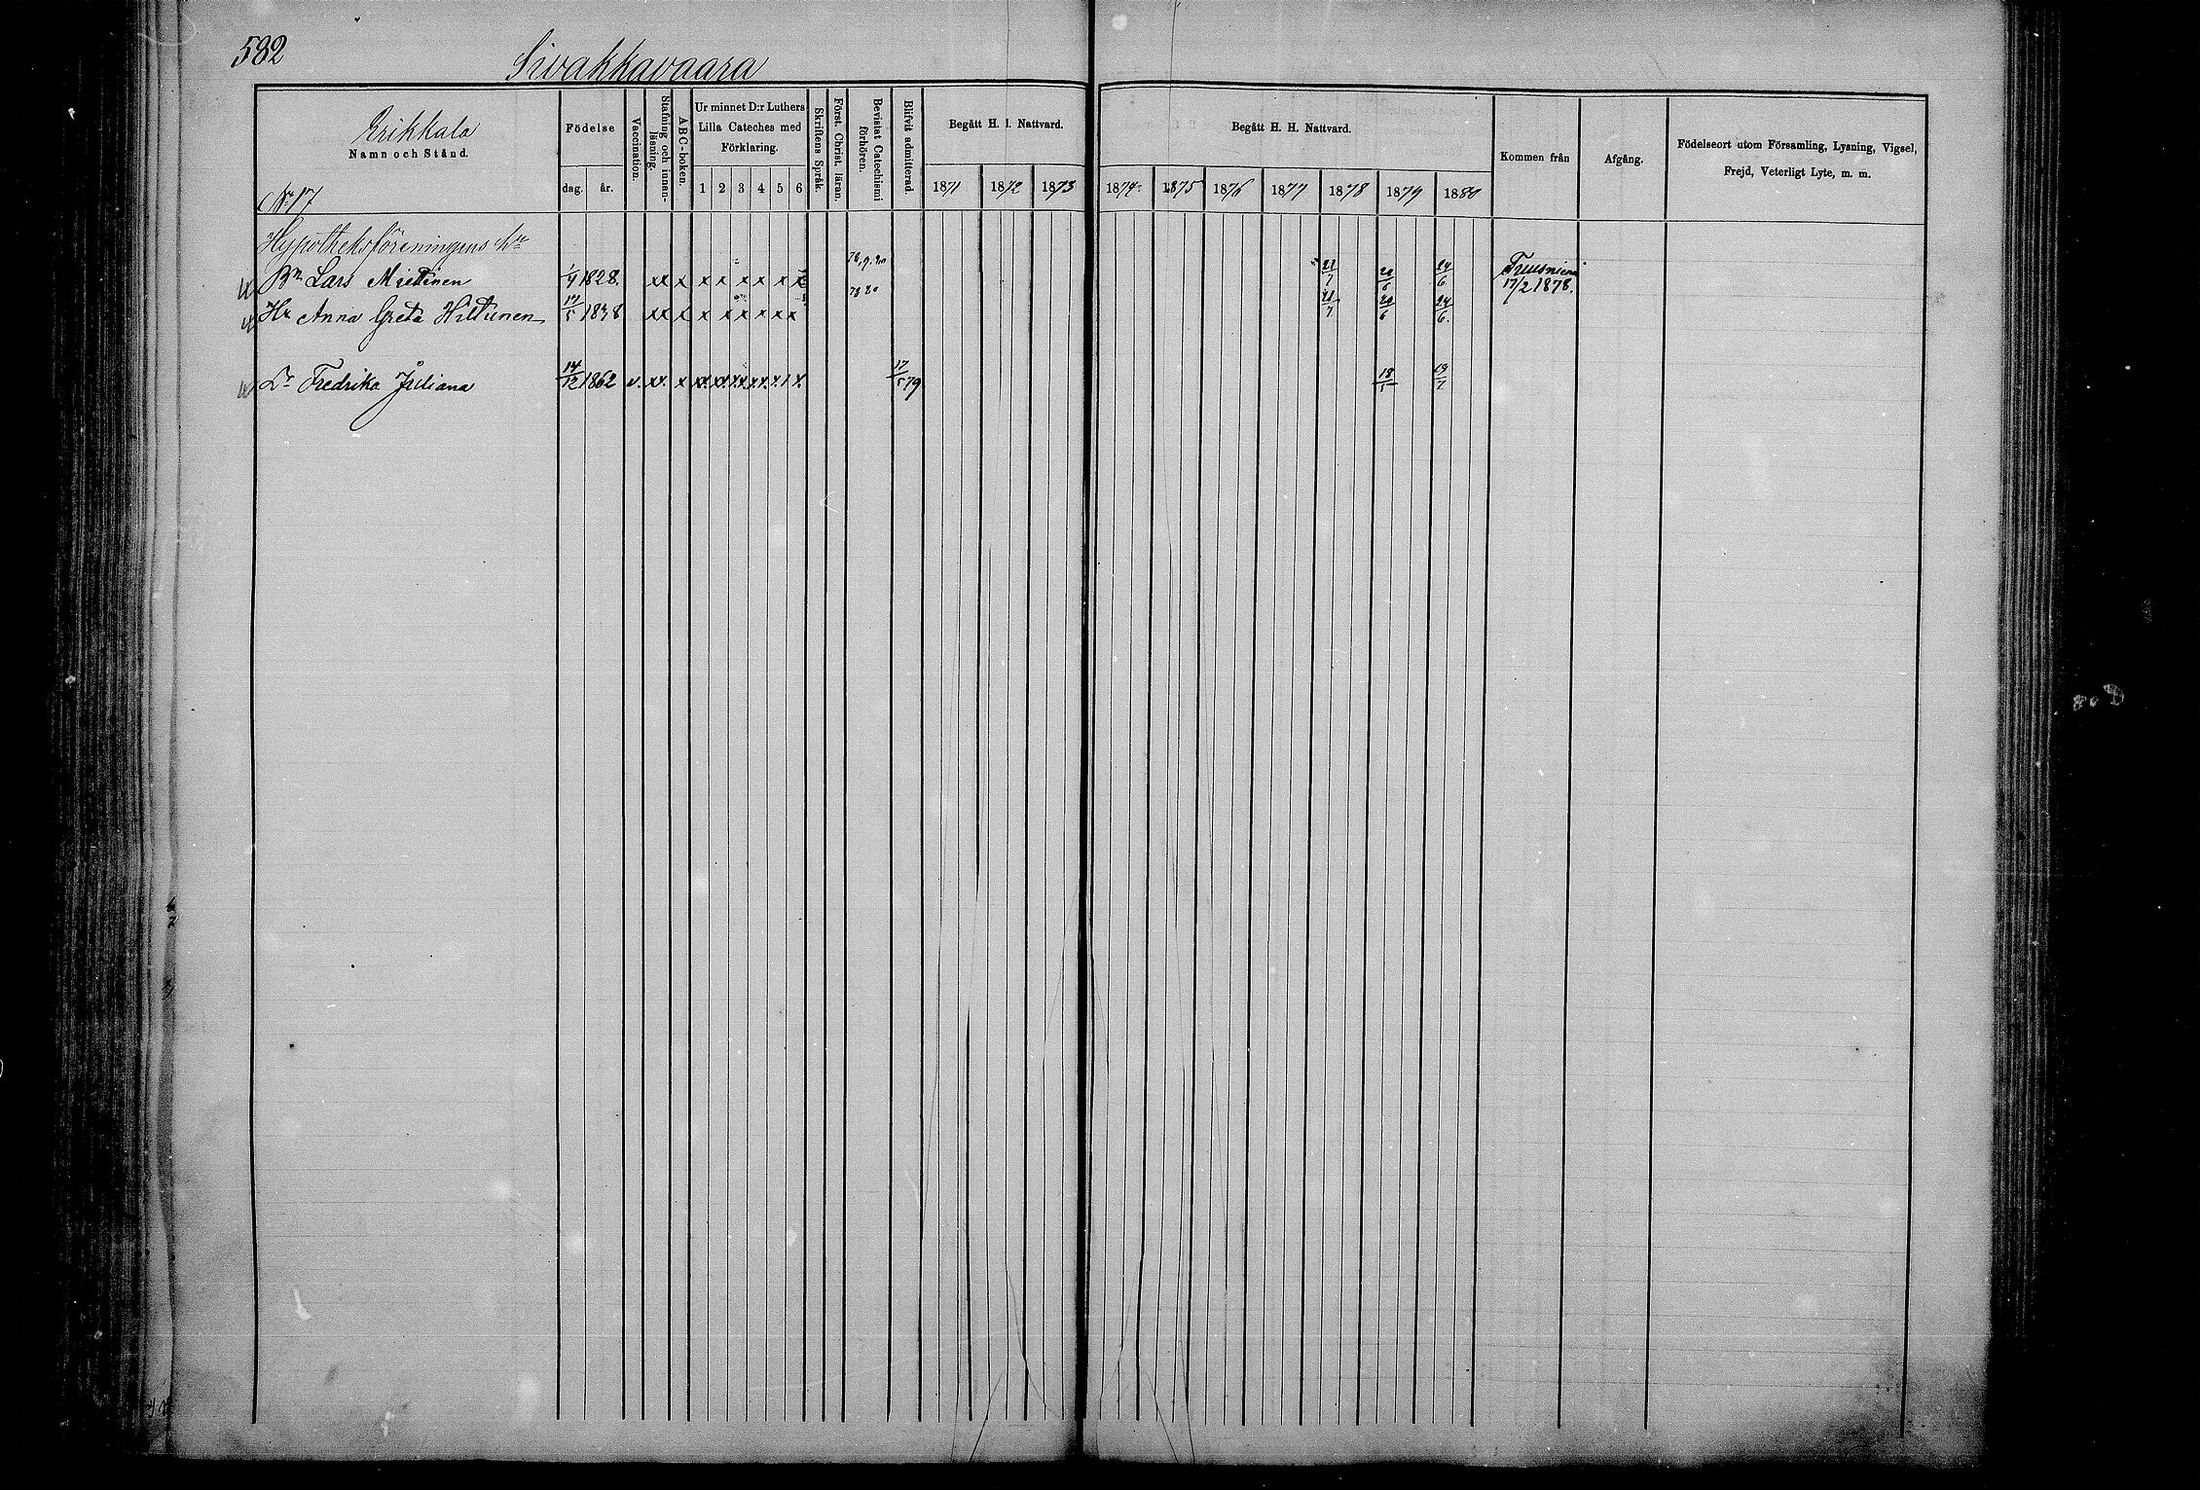 582
Sivakkavaara
Erikkala
Namn och Stånd.
Födelse
dag. år.
Vaccination.
Stafning och innanläsning.
ABC-boken.
Ur minnet D:r Luthers
Lilla Cateches med
Förklaring.
1 2 3 4 5 6
Skriftens Språk.
Först. Christ. läran.
Bevistat Catechismi
förhören.
Blifvit admitterad
Begått H. H. Nattvard.
1871 1872 1873
Begått H. H. Nattvard.
1874 1875 1876 1877 1878 1879 1880
Kommen från
Afgång.
Födelseort utom Församling, Lysning, Vigsel,
Frejd, Veterligt Lyte, m. m.
No 17
Hypotheksföreningens
Bn Lars Miettinen 1/4 1828. xx x x x x x x x 21/7 20/6 24/6 17/2 1878.
Hu Anna Greta Hiltunen 17/5 1838 xx x x x x x x x 21/7 20/6 24/6.
Dr Fredrika Juliana 14/12 1862 v. xx. x 17/5 79 18/5 19/7
80 D